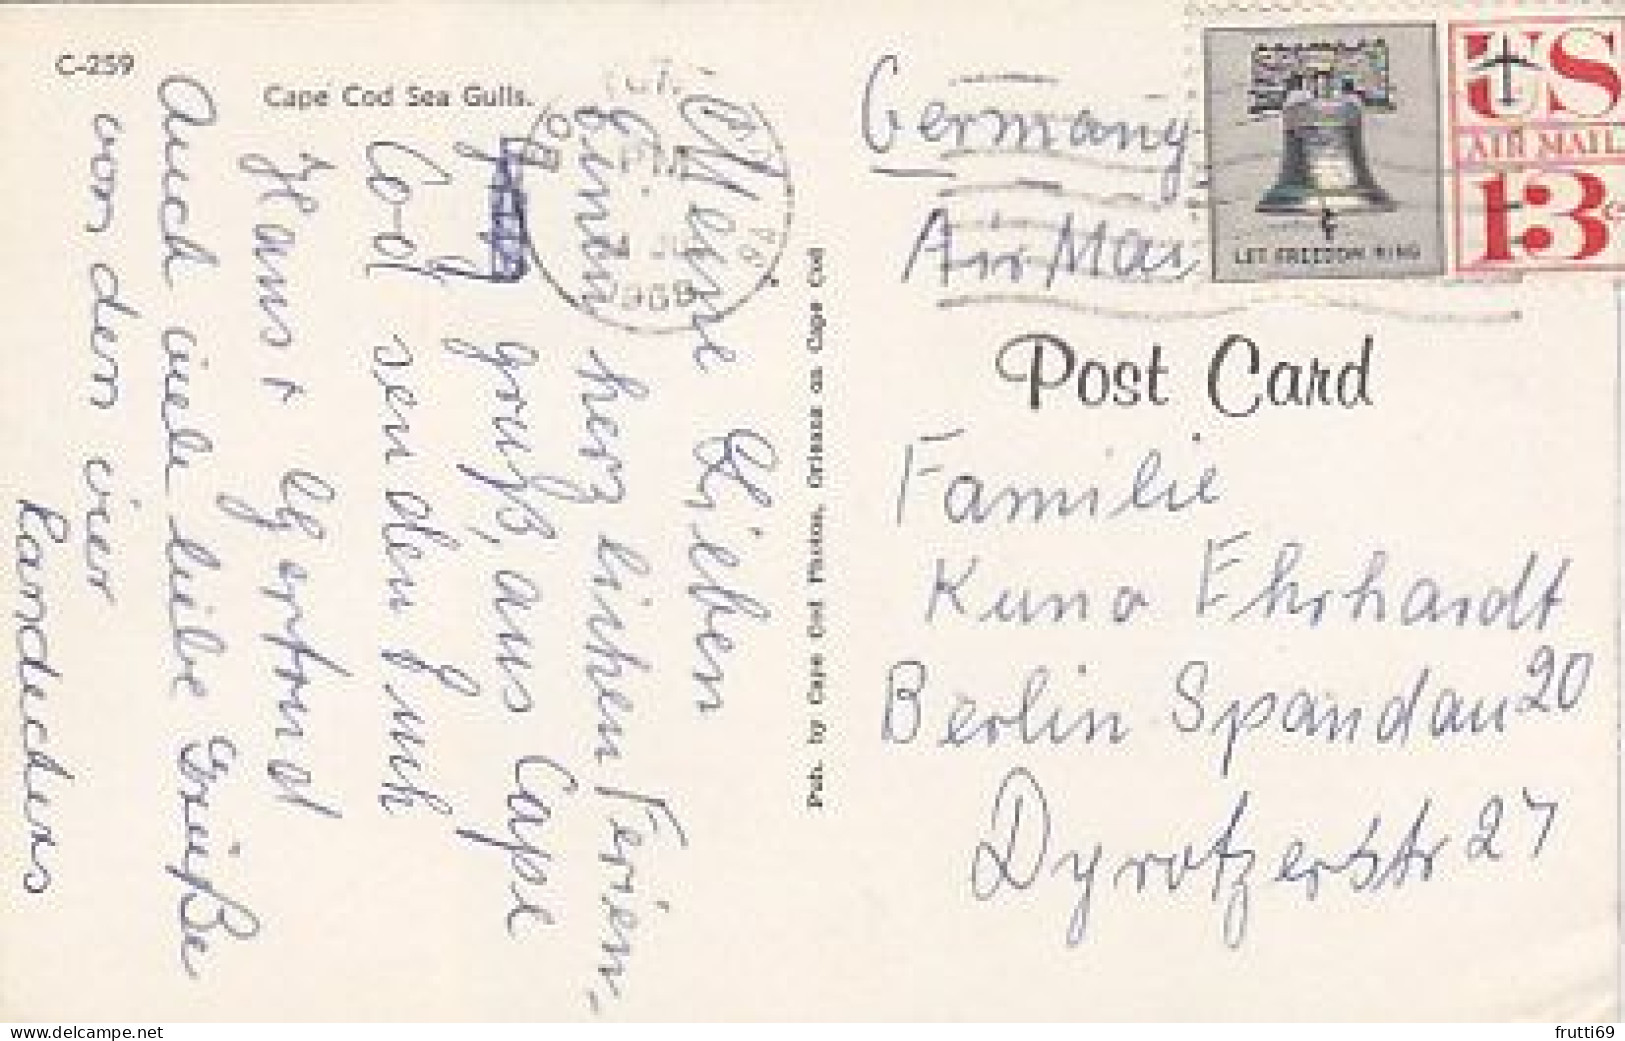 C-259
Cape Cod Sea Gulls.
Meine Lieben
Einen herzlichen Ferien-
gruß, aus Cape
Cod senden Euch
Hans +
Auch viele liebe Grüße
von den vier
Pub. by Cape Cod Photos, Orleans on Cape Cod
PM
1968
Germany
Air Mail
LET FREEDOM RING
US
AIR MAIL
13c
Post Card
Familie
Kuno Ehrhardt
Berlin Spandau 20
Dyrotzerstr 27
www.delcampe.net
frutti69